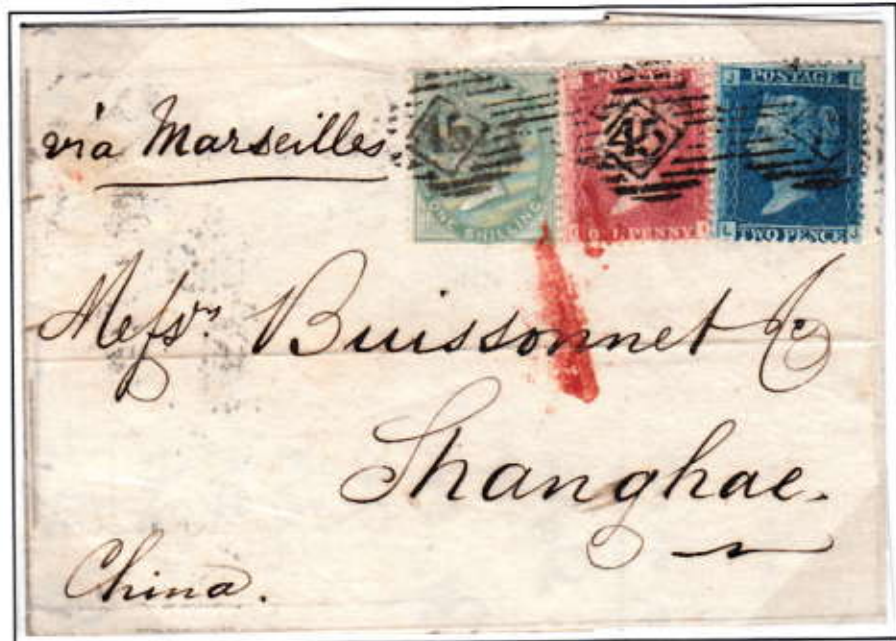 via Marseilles
45
ONE SHILLING
POSTAGE
45
ONE PENNY
J POSTAGE L
L TWO PENCE J
Mefsrs Buissonnet & Co
Shanghae.
China.